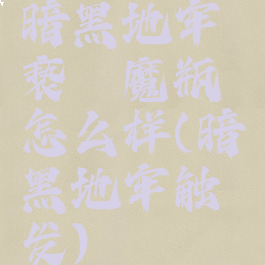 暗黑地牢
亵 魔瓶
怎么样(暗
黑地牢触
发)